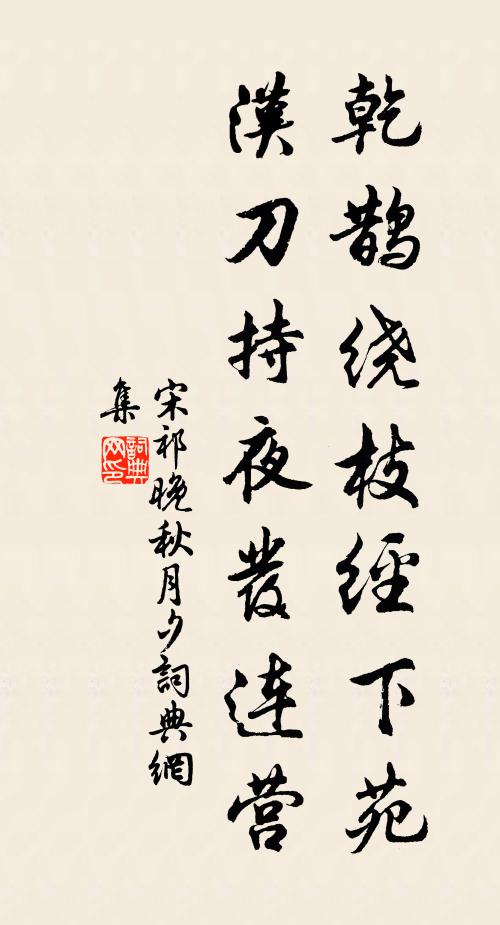 乾鹊绕枝經下苑
漢刀持夜發连营
宋祁晚秋月夕詞典網
集
詞典网印